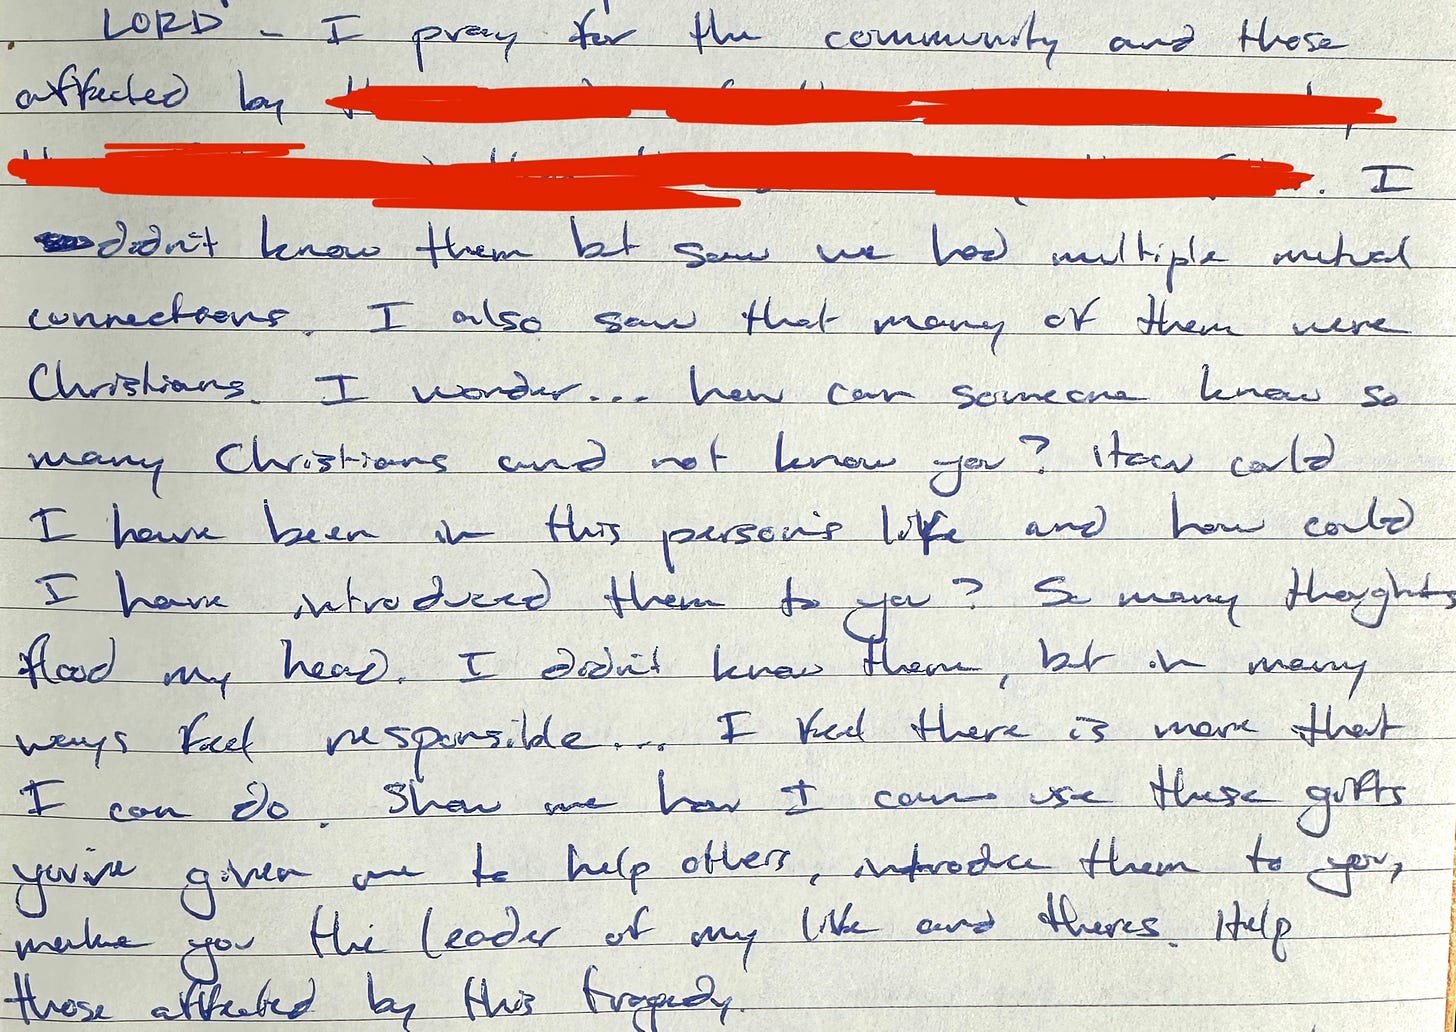 LORD - I pray for the community and those
affected by
. I
didn't know them but saw we had multiple mutual
connections. I also saw that many of them were
Christians. I wonder... how can someone know so
many Christians and not know you? How could
I have been in this person's life and how could
I have introduced them to you? So many thoughts
flood my head. I didn't know them, but in many
ways feel responsible... I feel there is more that
I can do. Show me how I can use these gifts
you've given me to help others, introduce them to you,
make you the leader of my life and theres. Help
those affected by this tragedy.